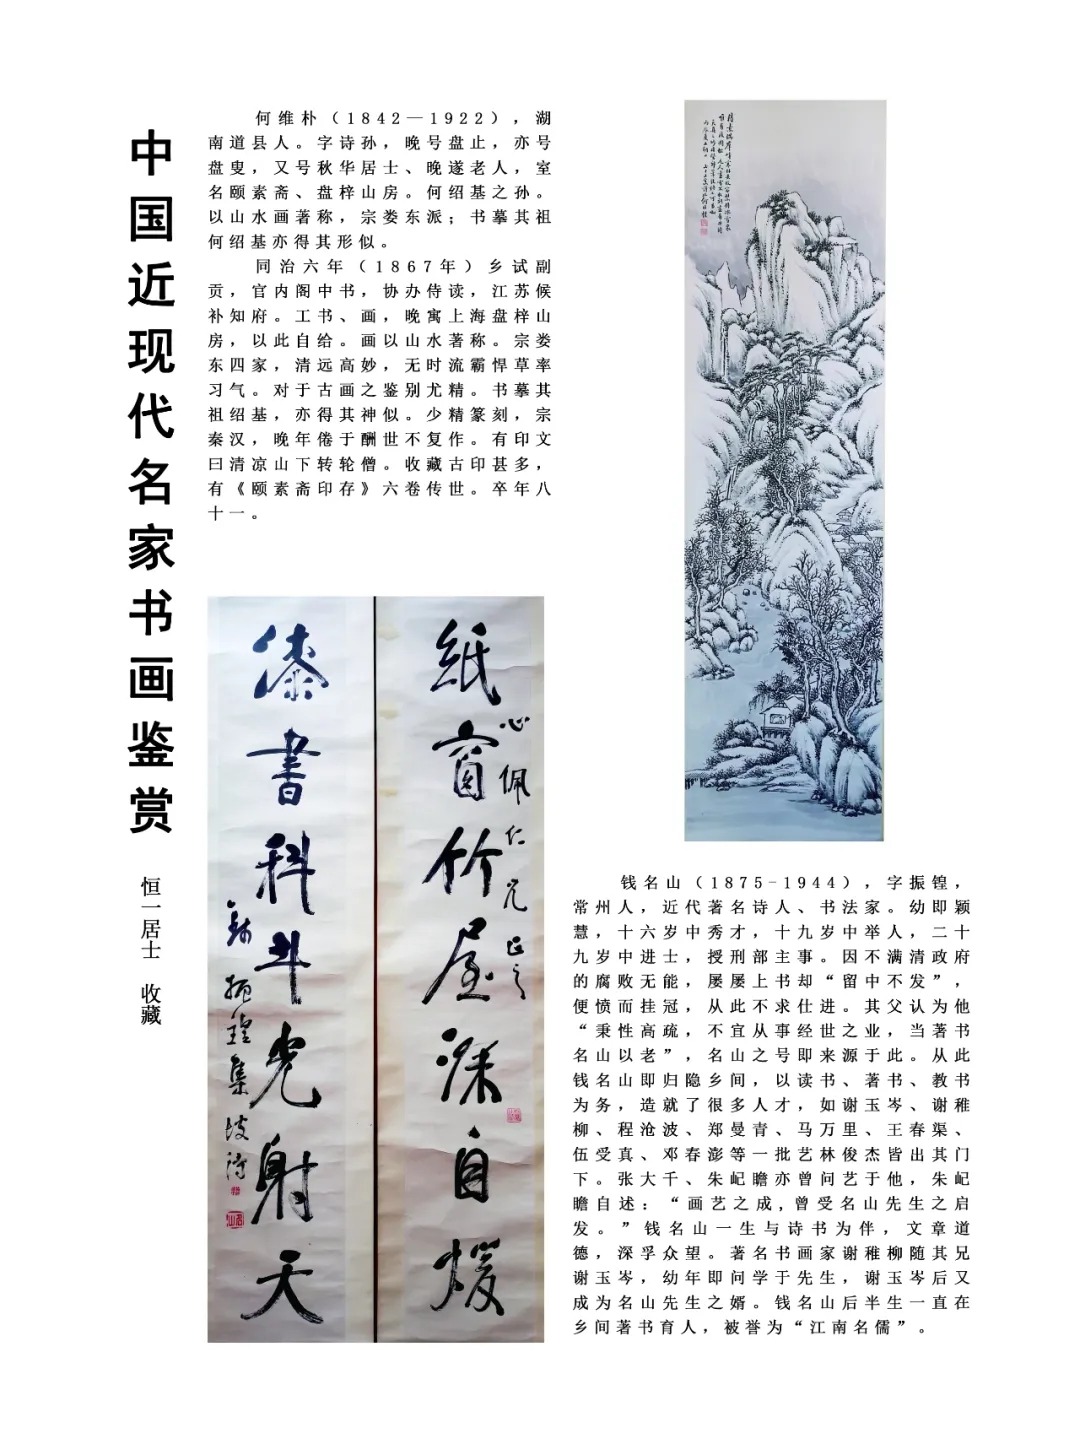 中国近现代名家书画鉴赏
恒一居士 收藏
何维朴（1842—1922），湖
南道县人。字诗孙，晚号盘止，亦号
盘叟，又号秋华居士、晚遂老人，室
名颐素斋、盘梓山房。何绍基之孙。
以山水画著称，宗娄东派；书摹其祖
何绍基亦得其形似。
同治六年（1867年）乡试副
贡，官内阁中书，协办侍读，江苏候
补知府。工书、画，晚寓上海盘梓山
房，以此自给。画以山水著称。宗娄
东四家，清远高妙，无时流霸悍草率
习气。对于古画之鉴别尤精。书摹其
祖绍基，亦得其神似。少精篆刻，宗
秦汉，晚年倦于酬世不复作。有印文
曰清凉山下转轮僧。收藏古印甚多，
有《颐素斋印存》六卷传世。卒年八
十一。
紙窗竹屋深自煖
心佩仁兄正之
漆書科斗光射天
錢振鍠集坡詩
钱名山（1875-1944），字振锽，
常州人，近代著名诗人、书法家。幼即颖
慧，十六岁中秀才，十九岁中举人，二十
九岁中进士，授刑部主事。因不满清政府
的腐败无能，屡屡上书却“留中不发”，
便愤而挂冠，从此不求仕进。其父认为他
“秉性高疏，不宜从事经世之业，当著书
名山以老”，名山之号即来源于此。从此
钱名山即归隐乡间，以读书、著书、教书
为务，造就了很多人才，如谢玉岑、谢稚
柳、程沧波、郑曼青、马万里、王春渠、
伍受真、邓春澎等一批艺林俊杰皆出其门
下。张大千、朱屺瞻亦曾问艺于他，朱屺
瞻自述：“画艺之成,曾受名山先生之启
发。”钱名山一生与诗书为伴，文章道
德，深孚众望。著名书画家谢稚柳随其兄
谢玉岑，幼年即问学于先生，谢玉岑后又
成为名山先生之婿。钱名山后半生一直在
乡间著书育人，被誉为“江南名儒”。